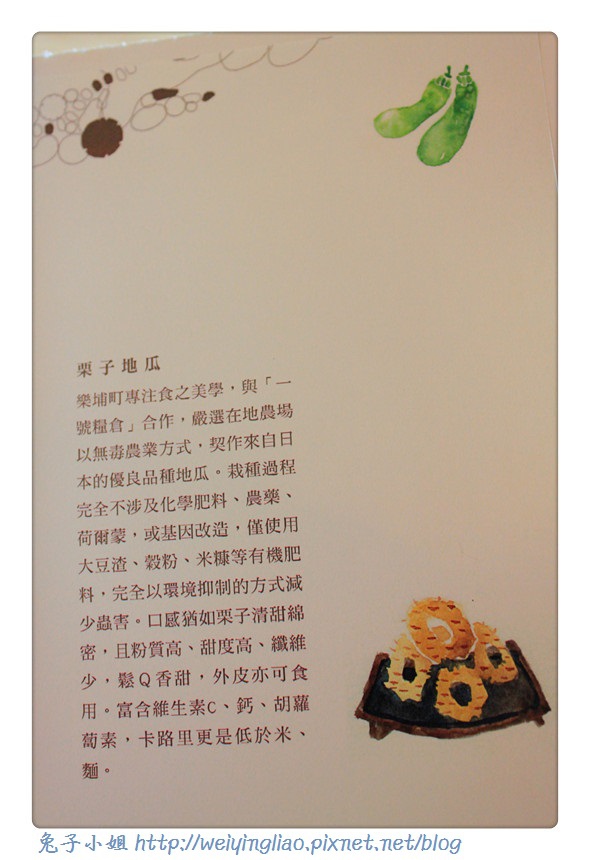 栗子地瓜
樂埔町專注食之美學，與「一
號糧倉」合作，嚴選在地農場
以無毒農業方式，契作來自日
本的優良品種地瓜。栽種過程
完全不涉及化學肥料、農藥、
荷爾蒙，或基因改造，僅使用
大豆渣、穀粉、米糠等有機肥
料，完全以環境抑制的方式減
少蟲害。口感猶如栗子清甜綿
密，且粉質高、甜度高、纖維
少，鬆Q香甜，外皮亦可食
用。富含維生素C、鈣、胡蘿
蔔素，卡路里更是低於米、
麵。
兔子小姐 http://weiyingliao.pixnet.net/blog